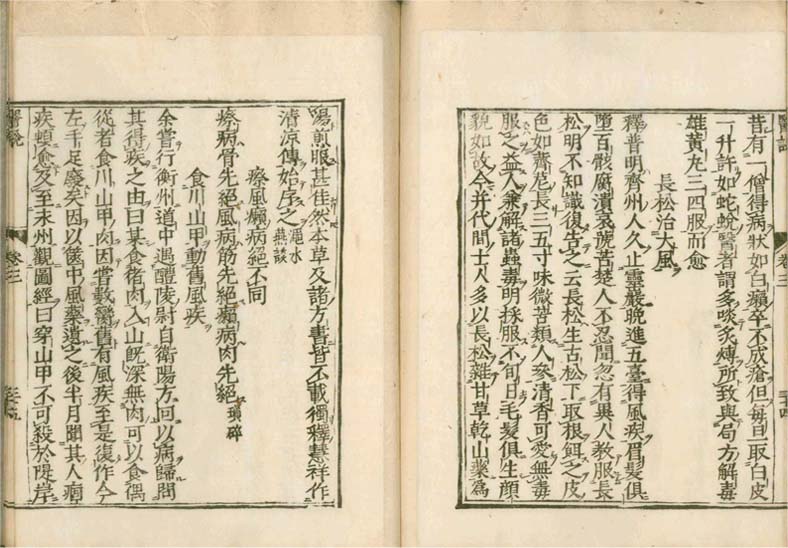 醫説 卷三 三十四
昔有一僧得病狀如白癩卒不成瘡但每旦取白皮
一升許如蛇蛻醫者謂多啖炙煿所致與局方解毒
雄黃丸三四服而愈
長松治大風
釋普明齊州人久止靈巖晚進五臺得風疾眉髮俱
墮百骸腐潰哀號苦楚人不忍聞忽有異人教服長
松明不知識復告之云長松生古松下取根餌之皮
色如薺苨長三五寸味微苦類人參清香可愛無毒
服之益人兼解諸蟲毒明採服不旬日毛髮俱生顏
貌如故今并代間士人多以長松雜甘草乾山藥為
湯煎服甚佳然本草及諸方書皆不載獨釋慧祥作
清涼傳始序之 澠水燕談
瘵風癩病絕不同
瘵病骨先絕風病筋先絕癩病肉先絕 瑣碎
食川山甲動舊風疾
余嘗行衡州道中遇醴陵尉自衡陽方回以病歸問
其得疾之由曰某食猪肉入山既深無肉可以食偶
從者食川山甲肉因嘗數臠舊有風疾至是復作今
左手足廢矣因以篋中風藥遺之後半月聞其人病
疾頓愈及至永州觀圖經曰穿山甲不可殺於隄岸
醫說 卷三 三十五